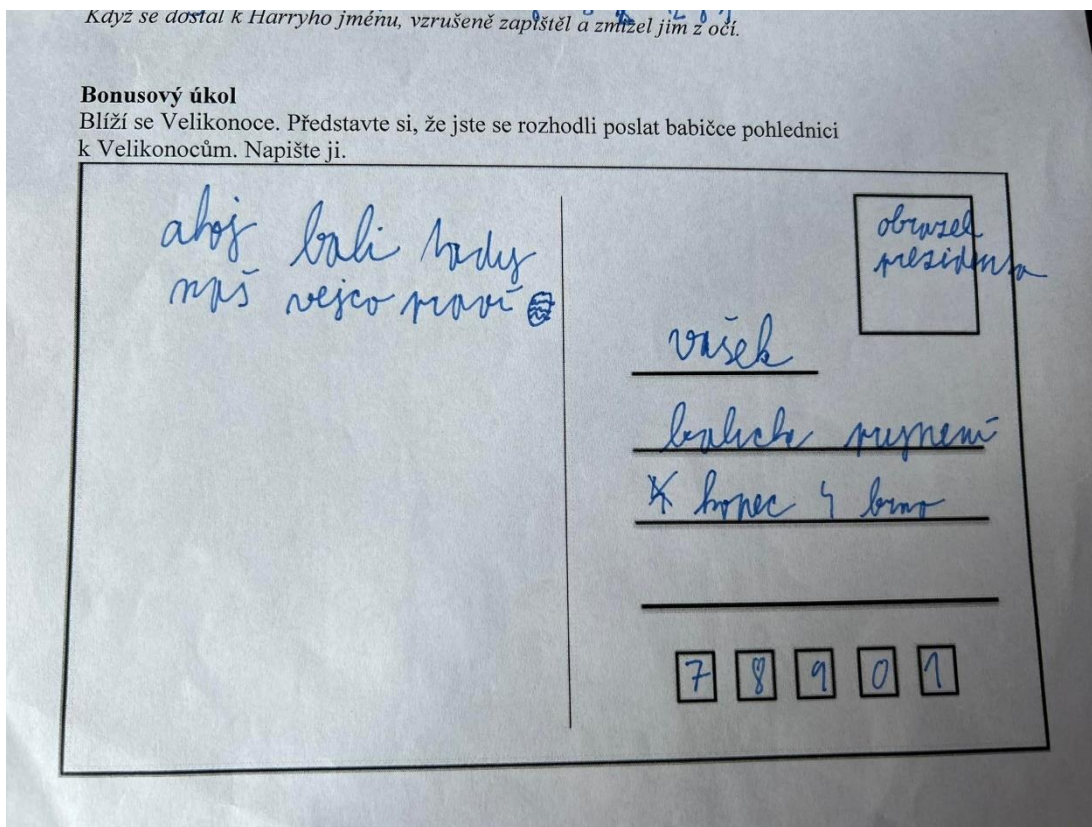 Když se dostal k Harryho jménu, vzrušeně zapištěl a zmizel jim z očí.
Bonusový úkol
Blíží se Velikonoce. Představte si, že jste se rozhodli poslat babičce pohlednici
k Velikonocům. Napište ji.
ahoj babi tady
máš vejco
obrazek
prezidenta
vašek
babička
kopec 4 brno
7 8 9 0 1